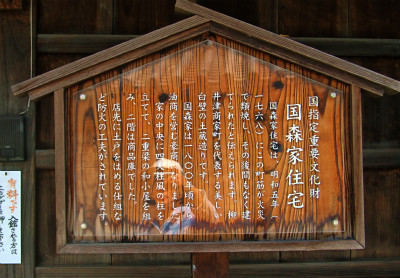 国指定重要文化財
国森家住宅
国森家住宅は、明和五年(一
七六八)にこの町筋が火災
で類焼し、その後間もなく建
てられたと伝えられます。柳
井津商家町を代表する美しい
白壁の土蔵造りです。
国森家は一八〇〇年頃
油商を営む豪商
家の中央に四
立て、二重梁の和小屋を組
み、二階は商品庫でした。
店先に土戸をはめる仕組な
ど防火の工夫がされています
有料です